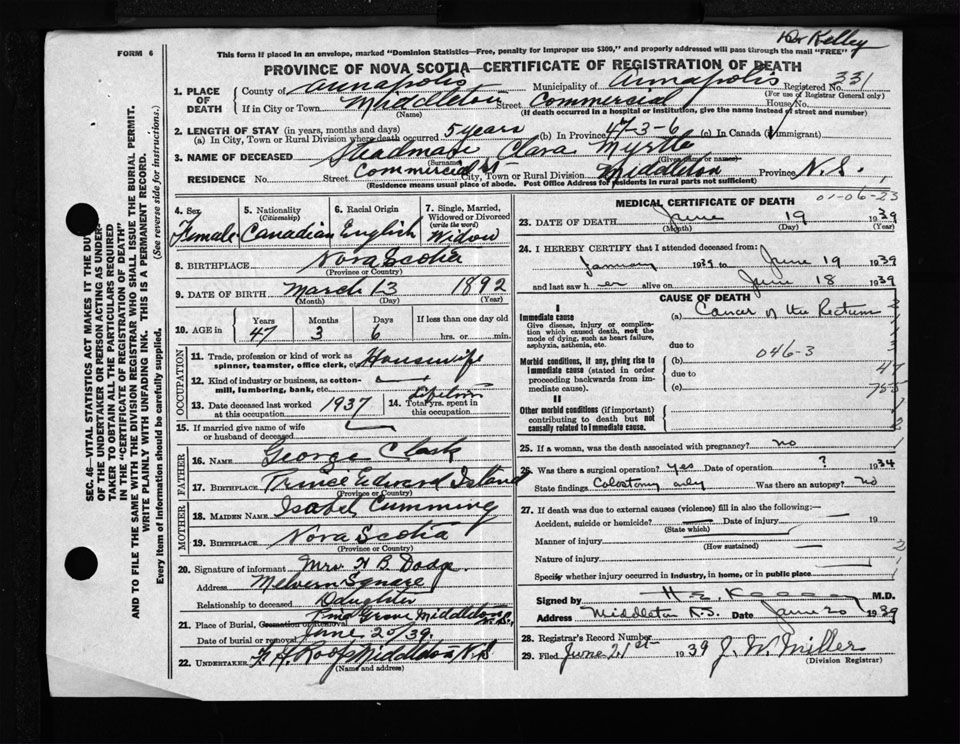 Dr Kelley
FORM 6
This form if placed in an envelope, marked "Dominion Statistics—Free, penalty for improper use $300," and properly addressed will pass through the mail "FREE"
PROVINCE OF NOVA SCOTIA—CERTIFICATE OF REGISTRATION OF DEATH
1. PLACE OF DEATH
County of Annapolis Municipality of Annapolis Registered No. 331
(For use of Registrar General only)
If in City or Town Middleton Street Commercial House No.
(Name) (If death occurred in a hospital or institution, give the name instead of street and number)
2. LENGTH OF STAY (in years, months and days)
(a) In City, Town or Rural Division where death occurred 5 years (b) In Province 47-3-6 (c) In Canada (if immigrant)
3. NAME OF DECEASED Steadman Clara Myrtle
(Surname) (Given name or names)
RESIDENCE No. Street Commercial St City, Town or Rural Division Middleton Province N.S.
(Residence means usual place of abode. Post Office Address for residents in rural parts not sufficient)
4. Sex Female
5. Nationality (Citizenship) Canadian
6. Racial Origin English
7. Single, Married, Widowed or Divorced (write the word) Widow
8. BIRTHPLACE Nova Scotia
(Province or Country)
9. DATE OF BIRTH March 13 1892
(Month) (Day) (Year)
10. AGE in Years 47 Months 3 Days 6 If less than one day old hrs. or min.
OCCUPATION
11. Trade, profession or kind of work as spinner, teamster, office clerk, etc. Housewife
12. Kind of industry or business, as cotton-mill, lumbering, bank, etc. —
13. Date deceased last worked at this occupation 1937
14. Total yrs. spent in this occupation Lifetime
15. If married give name of wife or husband of deceased
FATHER
16. NAME George Clark
17. BIRTHPLACE Prince Edward Island
(Province or Country)
MOTHER
18. MAIDEN NAME Isabel Cumming
19. BIRTHPLACE Nova Scotia
(Province or Country)
20. Signature of informant Mrs. H B. Dodge.
Address Melvern Square
Relationship to deceased Daughter
21. Place of Burial, Cremation or Removal Pine Grove Middleton N.S.
Date of burial or removal June 20/39.
22. UNDERTAKER Roop Middleton N.S
(Name and address)
MEDICAL CERTIFICATE OF DEATH
01-06-23
23. DATE OF DEATH June 19 1939
(Month) (Day) (Year)
24. I HEREBY CERTIFY that I attended deceased from:
January 1939 to June 19 1939
and last saw h er alive on June 18 1939
CAUSE OF DEATH
I
Immediate cause
Give disease, injury or complication which caused death, not the mode of dying, such as heart failure, asphyxia, asthenia, etc.
(a) Cancer of the Rectum
due to
Morbid conditions, if any, giving rise to immediate cause (stated in order proceeding backwards from immediate cause).
(b) 046-3
due to
47
(c)
II
Other morbid conditions (if important) contributing to death but not causally related to immediate cause.
25. If a woman, was the death associated with pregnancy? no
26. Was there a surgical operation? yes Date of operation ? 1934
State findings Colostomy only Was there an autopsy? no
27. If death was due to external causes (violence) fill in also the following:—
Accident, suicide or homicide? — Date of injury 19
(State which)
Manner of injury
(How sustained)
Nature of injury
Specify whether injury occurred in industry, in home, or in public place
Signed by H E Kelley M.D.
Address Middleton N.S. Date June 20 1939
28. Registrar's Record Number
29. Filed June 21st 1939 J. W. Miller
(Division Registrar)
SEC. 46—VITAL STATISTICS ACT MAKES IT THE DUTY OF THE UNDERTAKER OR PERSON ACTING AS UNDERTAKER TO OBTAIN ALL THE PARTICULARS REQUIRED IN THE "CERTIFICATE OF REGISTRATION OF DEATH" AND TO FILE THE SAME WITH THE DIVISION REGISTRAR WHO SHALL ISSUE THE BURIAL PERMIT.
WRITE PLAINLY WITH UNFADING INK. THIS IS A PERMANENT RECORD.
Every item of information should be carefully supplied. (See reverse side for instructions.)